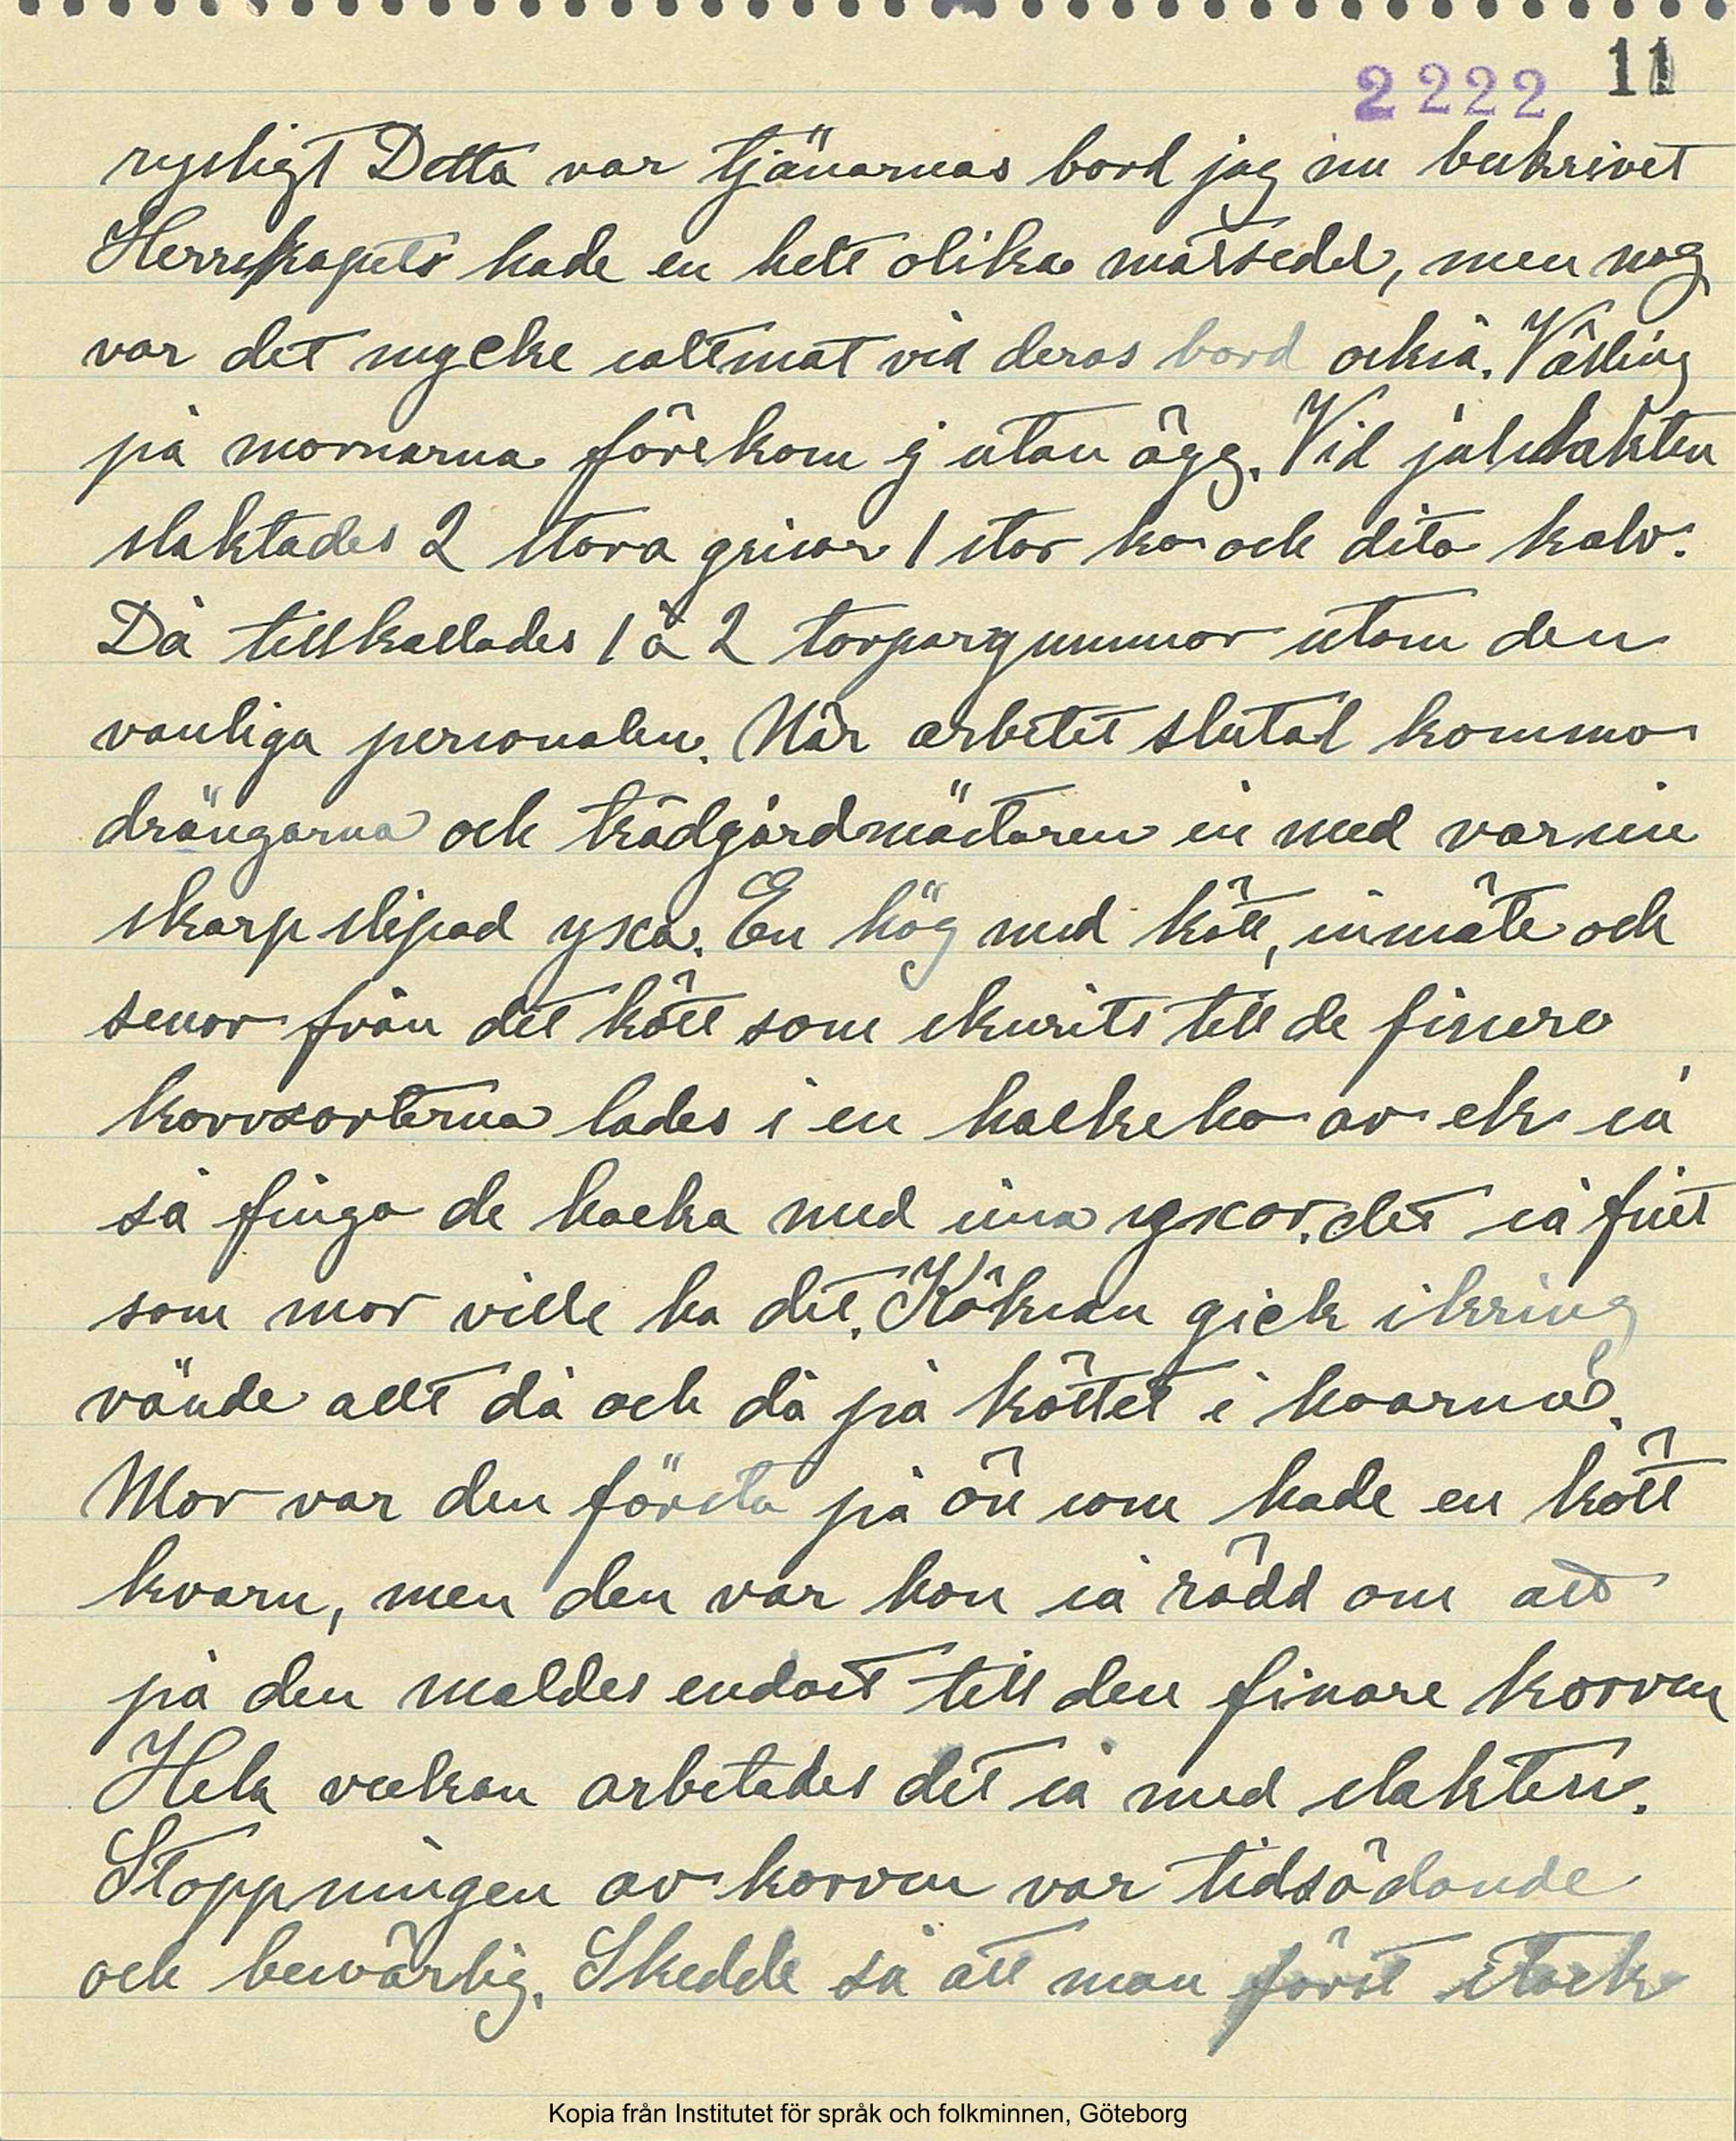 2222 11
rysligt Detta var tjänarnas bord jag nu beskrivet
Herrskapets hade en helt olika matsedel, men nog
var det mycke saltmat vid deras bord också. Välling
på mornarna förekom ej utan ägg. Vid julslakten
slaktades 2 stora grisar 1 stor ko och dito kalv.
Då tillkallades 1 à 2 torpargummor utom den
vanliga personalen. När arbetet slutat kommo
drängarna och trädgårdmästaren in med var sin
skarp slipad yxa. En hög med kött, inmäte och
senor från det kött som skurits till de finare
korvsorterna lades i en hackeho av ek så
så fingo de hacka med sina yxor. det så fint
som mor ville ha det. Köksan gick ikring
vände allt då och då på köttet i hoarna.
Mor var den första på ön som hade en kött
kvarn, men den var hon så rädd om att
på den maldes endast till den finare korven
Hela veckan arbetades det så med slakten.
Stoppningen av korven var tidsödande
och besvärlig. Skedde så att man först stack
Kopia från Institutet för språk och folkminnen, Göteborg